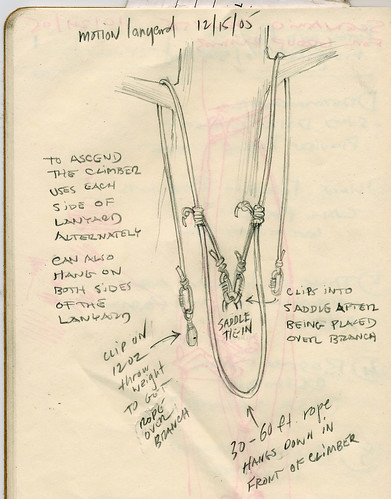 motion lanyard 12/15/05
TO ASCEND
THE CLIMBER
USES EACH
SIDE OF
LANYARD
ALTERNATELY
CAN ALSO
HANG ON
BOTH SIDES
OF THE
LANYARD
CLIP ON
12 OZ
throw
weight
TO GET
ROPE
OVER
BRANCH
SADDLE
TIE IN
CLIPS INTO
SADDLE AFTER
BEING PLACED
OVER BRANCH
30-60 ft. rope
HANGS DOWN IN
FRONT OF CLIMBER